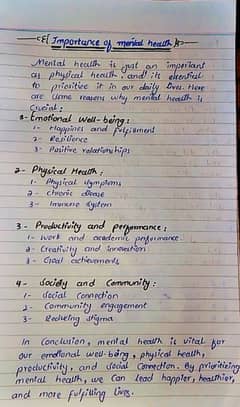 Importance of mental health
Mental health is just an important
as physical health, and it's essential
to prioritize it in our daily lives. Here
are some reasons why mental health is
crucial:
1- Emotional Well-being:
1- Happines and fulfilment
2- Resilience
3- Positive relationships
2- Physical Health:
1- Physical symptoms
2- Chronic disease
3- Immune System
3- Productivity and performance:
1- Work and academic performance.
2- Creativity and innovation
3- Goal achievements
4- Society and Community:
1- Social Connection
2- Community engagement
3- Reducing stigma
In Conclusion, mental health is vital for
our emotional well-being, physical health,
productivity, and social Connection. By prioritizing
mental health, we can lead happier, healthier,
and more fulfilling lives.